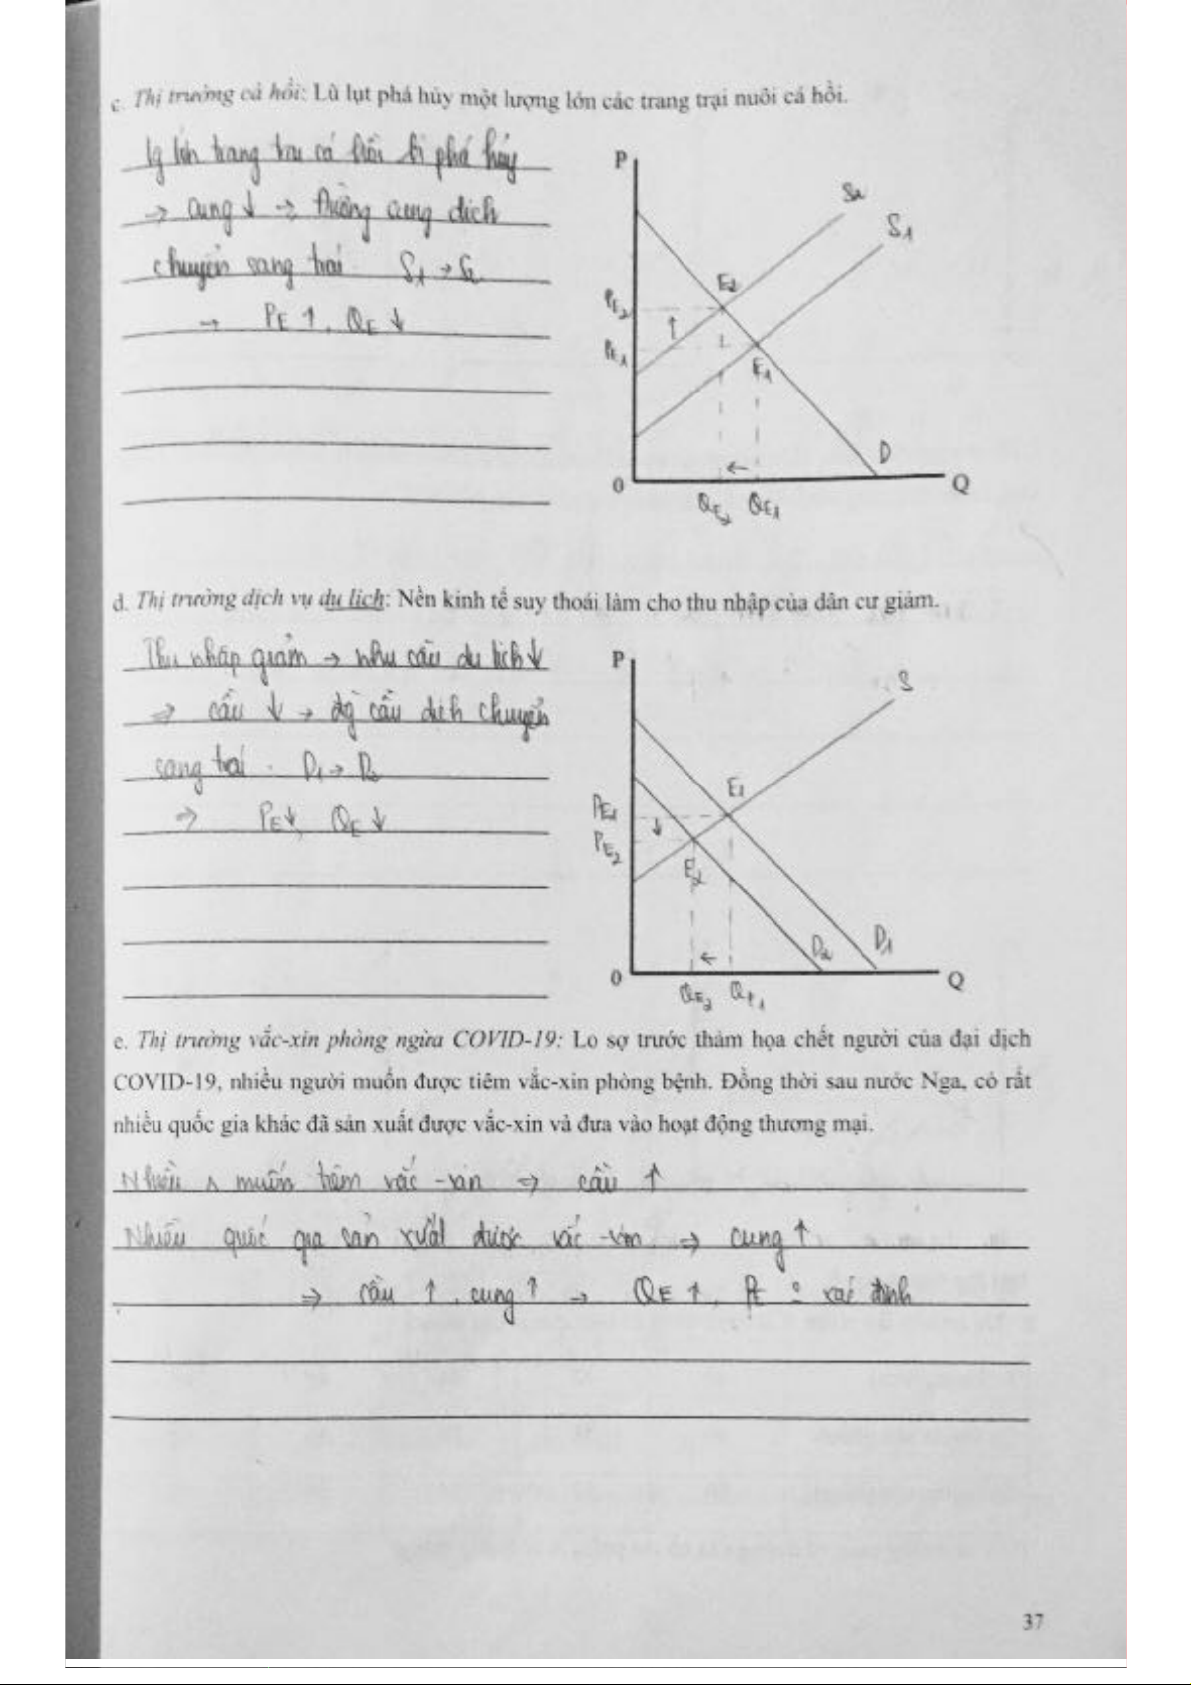 c. Thị trường cá hồi: Lũ lụt phá hủy một lượng lớn các trang trại nuôi cá hồi.
lg lớn trang trại cá hồi bị phá hủy
→ cung ↓ → Đường cung dịch
chuyển sang trái S1 → S2
→ PE ↑, QE ↓
P
S2
S1
E2
PE2
↑
PE1
E1
D
←
0
Q
QE2 QE1
d. Thị trường dịch vụ du lịch: Nền kinh tế suy thoái làm cho thu nhập của dân cư giảm.
Thu nhập giảm → nhu cầu du lịch ↓
⇒ cầu ↓ → đg cầu dịch chuyển
sang trái. D1 → D2
⇒ PE ↓, QE ↓
P
S
E1
PE1
↓
PE2
E2
D2 D1
←
0
Q
QE2
e. Thị trường vắc-xin phòng ngừa COVID-19: Lo sợ trước thảm họa chết người của đại dịch
COVID-19, nhiều người muốn được tiêm vắc-xin phòng bệnh. Đồng thời sau nước Nga, có rất
nhiều quốc gia khác đã sản xuất được vắc-xin và đưa vào hoạt động thương mại.
Nhiều muốn tiêm vắc-xin ⇒ cầu ↑
Nhiều quốc gia sản xuất được vắc-xin ⇒ cung ↑
⇒ cầu ↑, cung ↑ → QE ↑, PE xác định
37